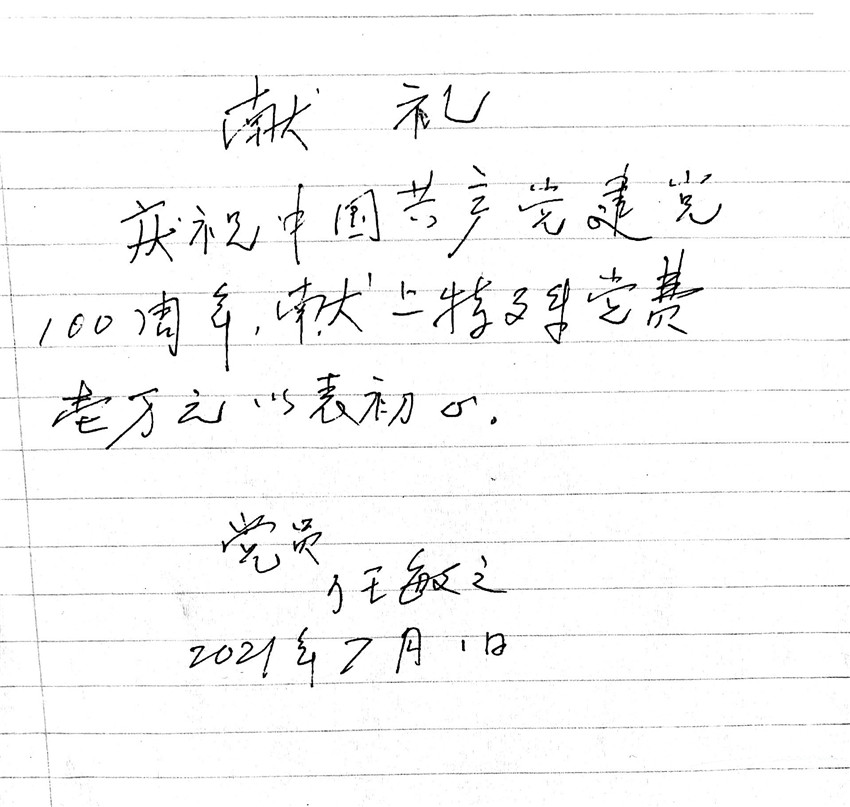 献 礼
庆祝中国共产党建党
100周年,献上特殊党费
壹万元以表初心.
党员
任敏之
2021年7月1日